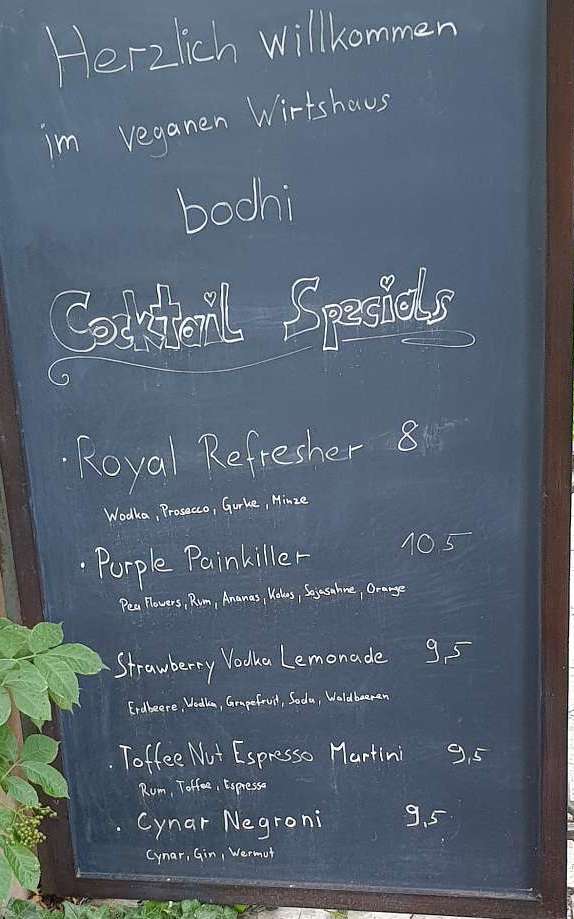 Herzlich willkommen
im veganen Wirtshaus
bodhi
Cocktail Specials
· Royal Refresher 8
Wodka, Prosecco, Gurke, Minze
· Purple Painkiller 10 5
Pea Flowers, Rum, Ananas, Kokos, Sojasahne, Orange
· Strawberry Vodka Lemonade 9,5
Erdbeere, Wodka, Grapefruit, Soda, Waldbeeren
· Toffee Nut Espresso Martini 9,5
Rum, Toffee, Espresso
· Cynar Negroni 9,5
Cynar, Gin, Wermut